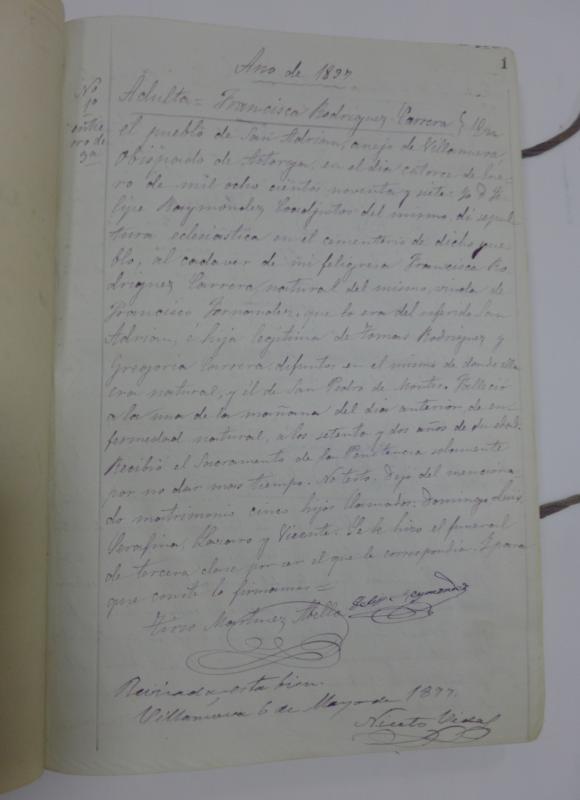 1
Año de 1897
Nº 1º
entie
rro de
3ª
Adulta = Francisca Rodriguez Carrera } En
el pueblo de San Adrian, anejo de Villanueva,
Obispado de Astorga, en el dia catorce de Ene-
ro de mil ocho cientos noventa y siete: Yo D. Fe-
lipe Raymóndez Coadjutor del mismo, di sepul-
tura eclesiástica en el cementerio de dicho pue
blo, al cadaver de mi feligresa Francisca Ro-
driguez Carrera, natural del mismo, viuda de
Francisco Fernández, que lo era del referido San
Adrian, é hija legitima de Tomas Rodriguez y
Gregoria Carrera, difuntos en el mismo de donde ella
era natural, y él de San Pedro de Montes. Falleció
a la una de la mañana del dia anterior, de en-
fermedad natural, a los setenta y dos años de su edad.
Recibió el Sacramento de la Penitencia solamente
por no dar mas tiempo. No testó. Dejó del menciona-
do matrimonio cinco hijos llamados: Domingo, Luis,
Serafina, Lazaro y Vicente. Se le hizo el funeral
de tercera clase por ser el que le correspondia. Y para
que conste lo firmamos =
Martinez
Felipe Raymóndez
Revisada esta bien.
Villanueva 6 de Mayo de 1897.
Niceto Vidal